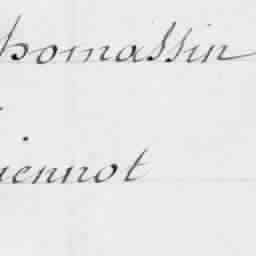 homassin
iennot